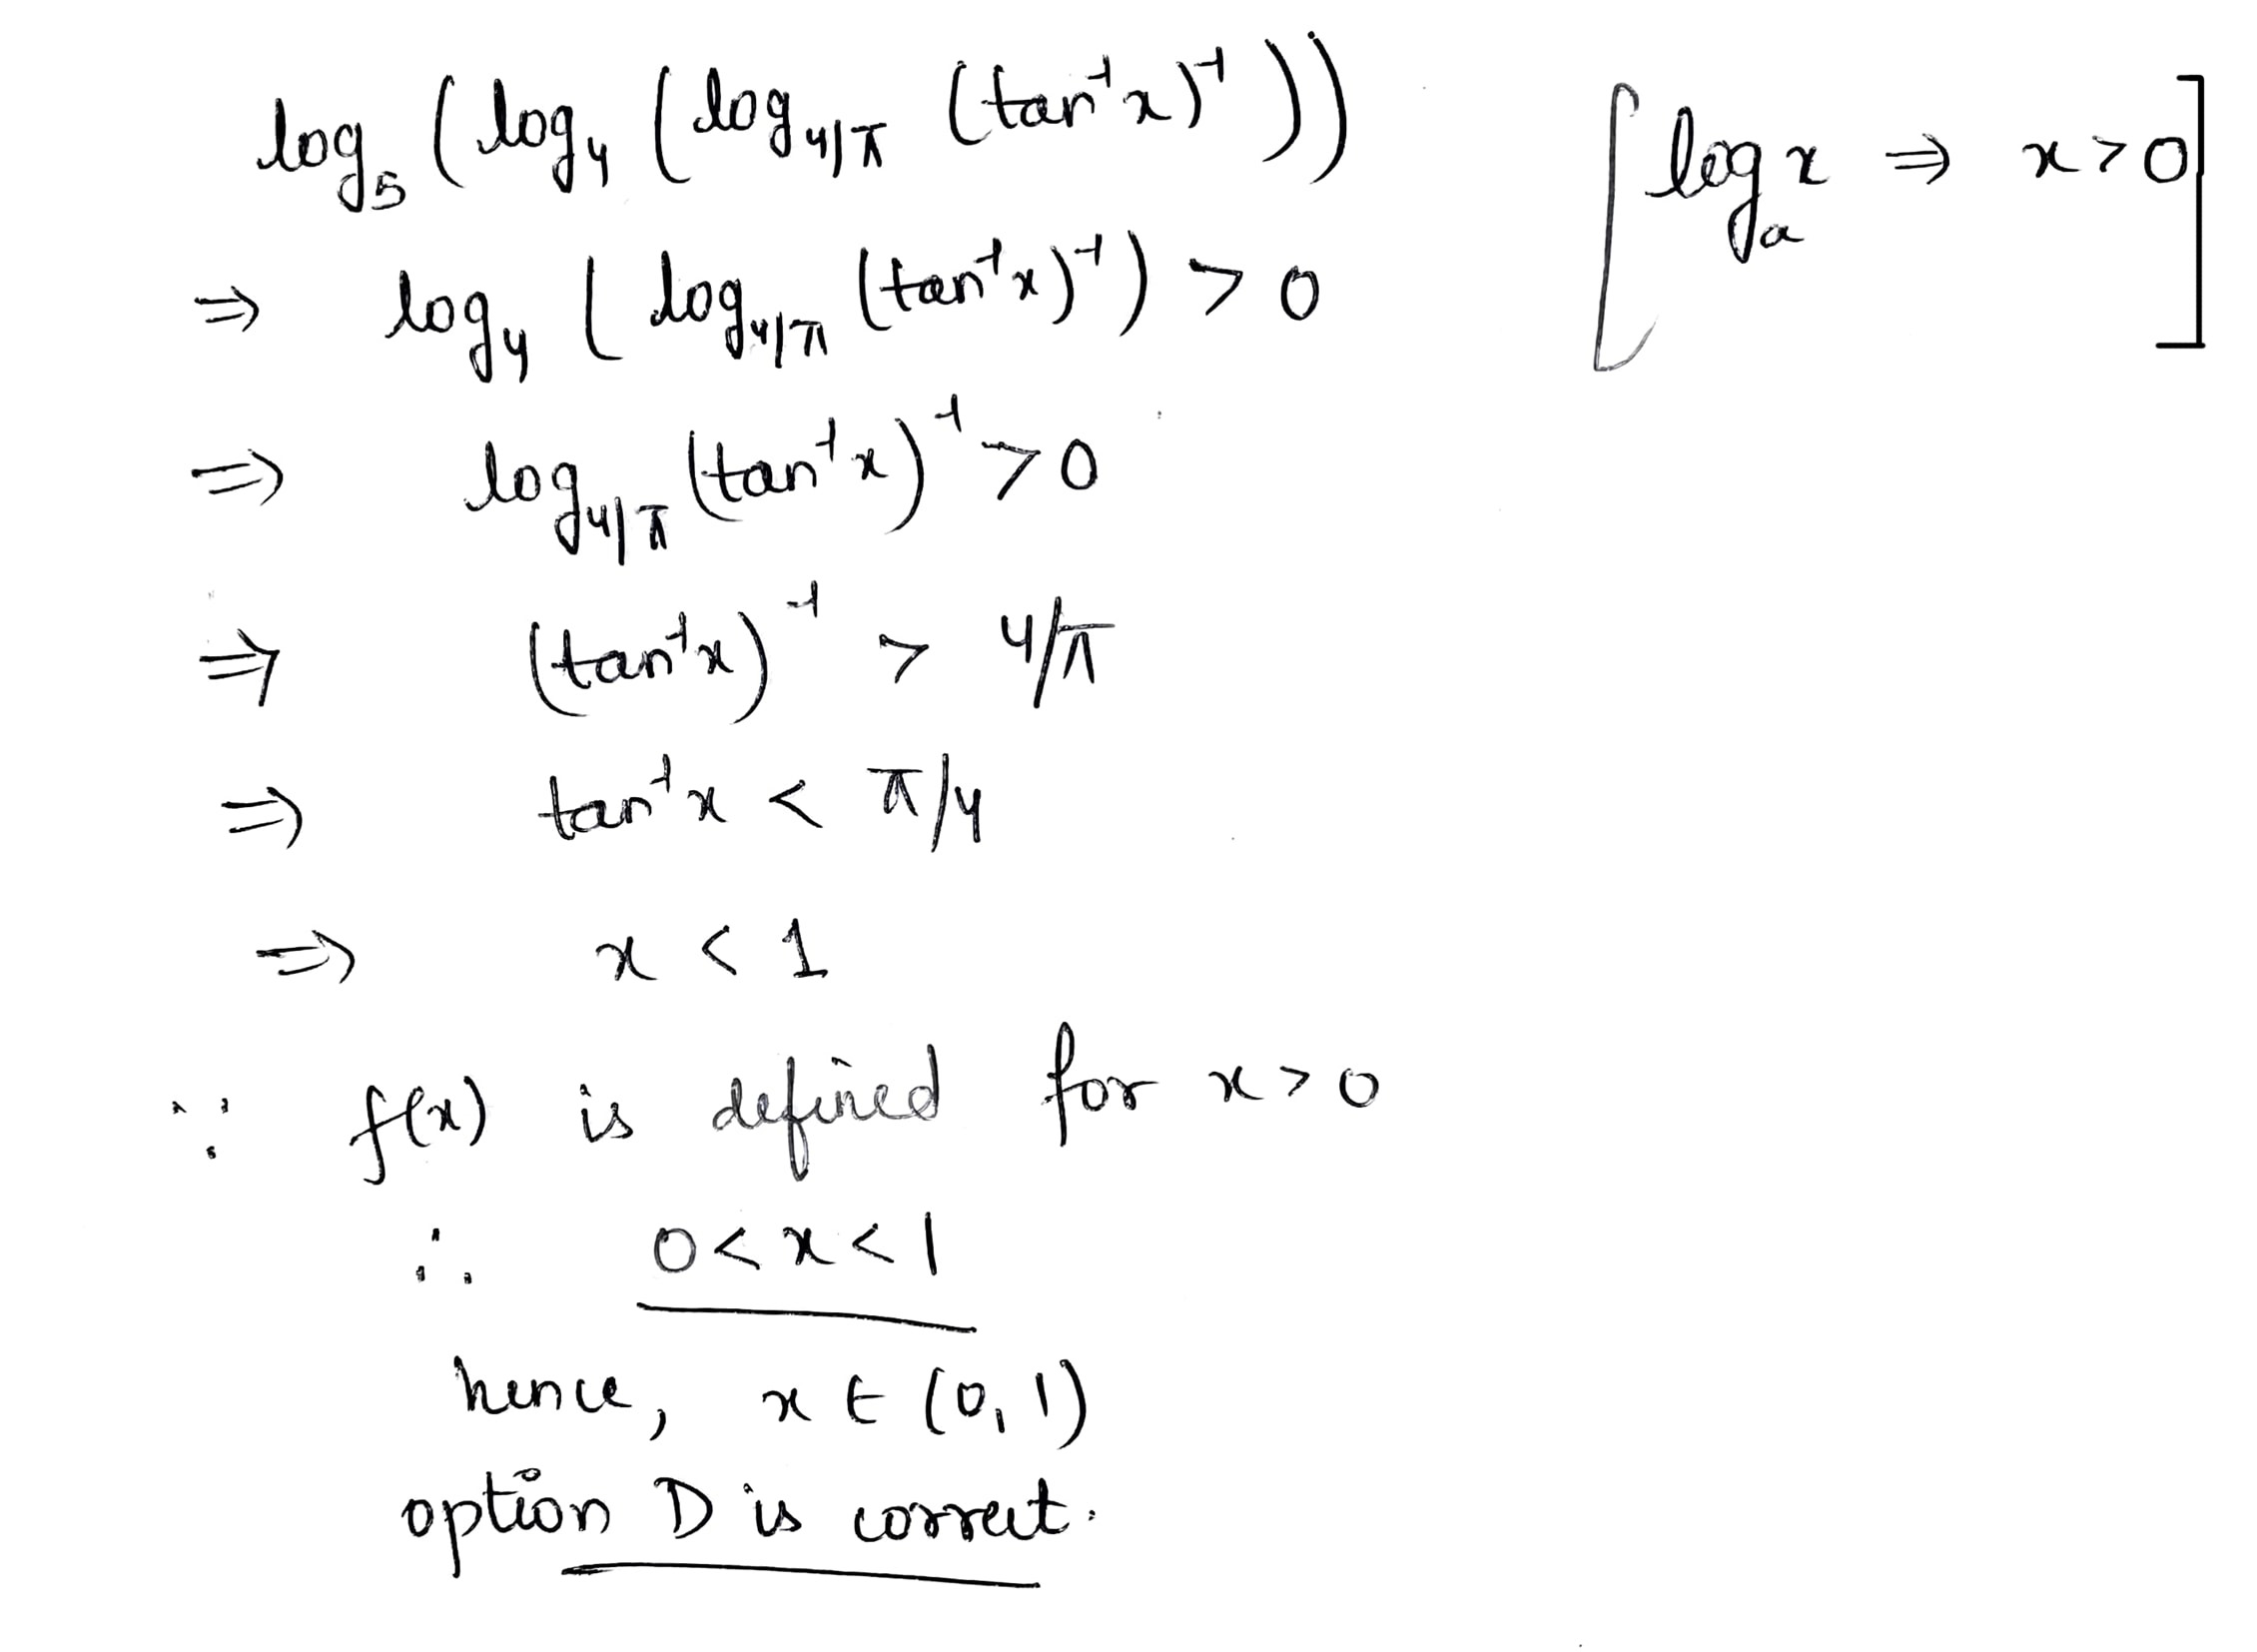 log₅ (log₄ (log_{4/π} (tan⁻¹x)⁻¹))
[log_a x ⇒ x > 0]
⇒ log₄ (log_{4/π} (tan⁻¹x)⁻¹) > 0
⇒ log_{4/π} (tan⁻¹x)⁻¹ > 0
⇒ (tan⁻¹x)⁻¹ > 4/π
⇒ tan⁻¹x < π/4
⇒ x < 1
∵ f(x) is defined for x > 0
∴ 0 < x < 1
hence, x ∈ (0, 1)
option D is correct.